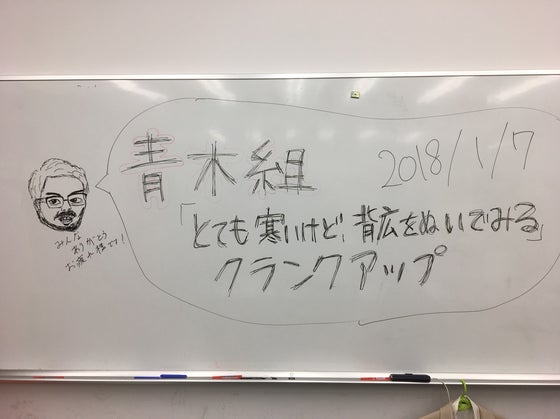 青木組
2018/1/7
「とても寒いけど、背広をぬいでみる」
クランクアップ
みんな
ありがとう
お疲れ様です！